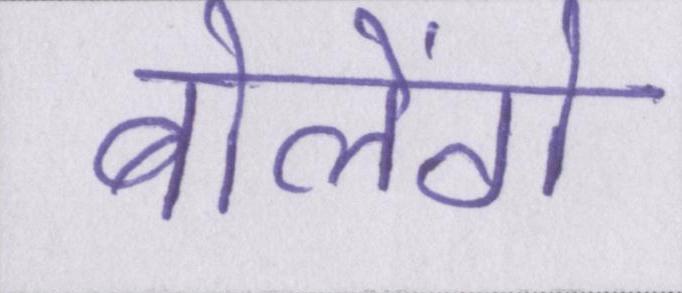 बोलेंगे